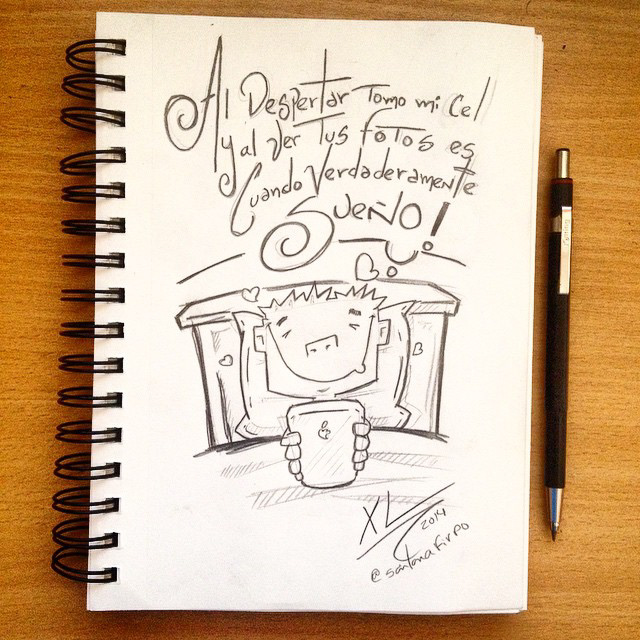 Al Despertar Tomo mi Cel
y al Ver Tus fotos es
Cuando Verdaderamente
Sueño!
XL
2014
@santanafirpo